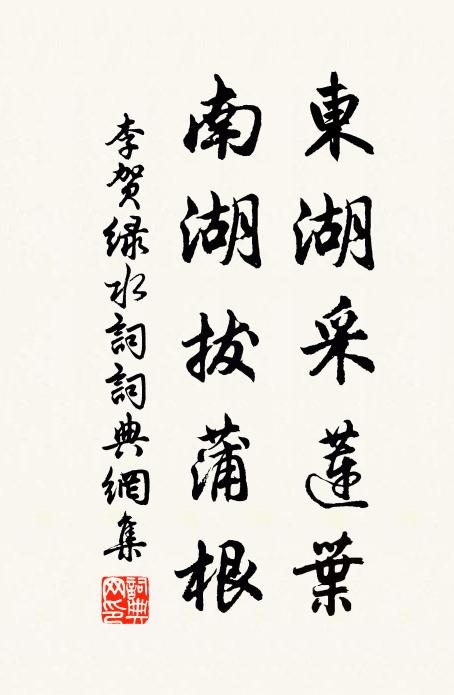 東湖采蓮葉
南湖拔蒲根
李賀緑水詞詞典網集
詞典網印